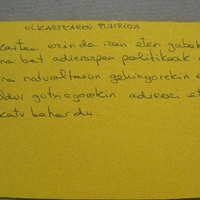 ELKARTEAREN FUNTZIOA
kartea ezinda izan eten gabek
na bat adierazpen politikoak e
na naturaltasun gehiagorekin e
ldur gutxiagorekin adierazi et
katu behar du